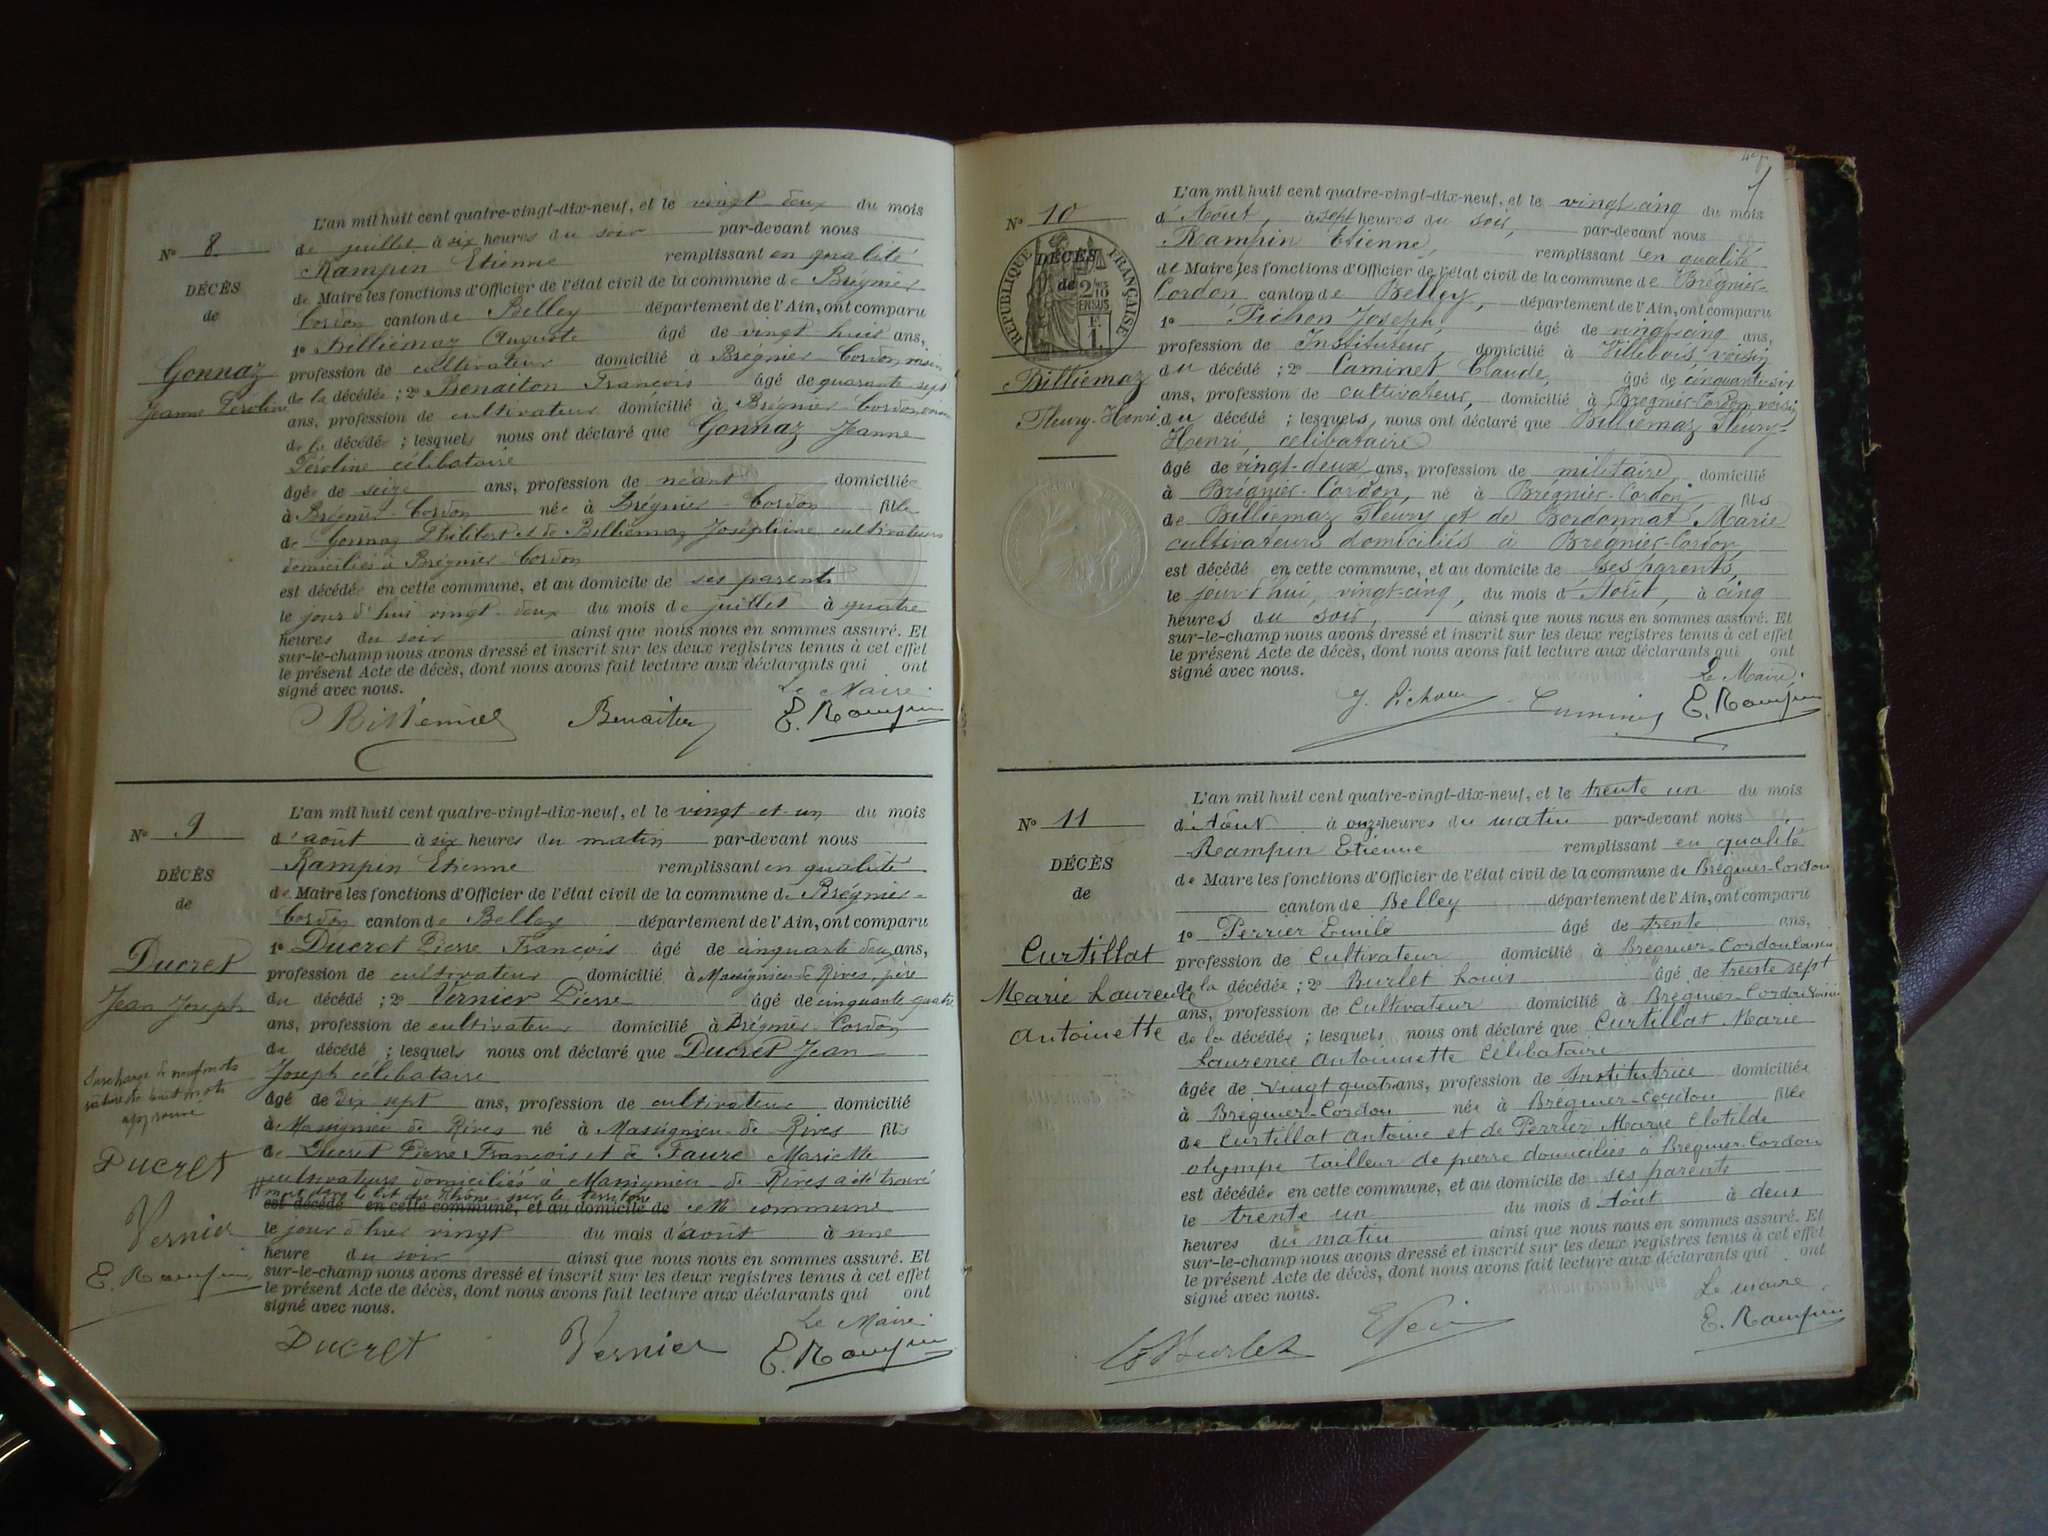 L'an mil huit cent quatre-vingt-dix-neuf, et le vingt-deux du mois
N° 8
de juillet à six heures du soir par-devant nous
Rampin Etienne remplissant en qualité
DÉCÈS
de Maire les fonctions d'Officier de l'état civil de la commune de Brégnier
de
Cordon canton de Belley département de l'Ain, ont comparu
1° Billiémaz Auguste âgé de vingt huit ans,
Gonnaz
profession de cultivateur domicilié à Brégnier-Cordon, voisin
Jeanne Péroline
de la décédée ; 2° Benaiton François âgé de quarante sept
ans, profession de cultivateur domicilié à Brégnier-Cordon, voisin
de la décédée ; lesquels nous ont déclaré que Gonnaz Jeanne
Péroline célibataire
âgée de seize ans, profession de néant domiciliée
à Brégnier-Cordon née à Brégnier-Cordon fille
de Gonnaz Philibert et de Billiémaz Joséphine cultivateurs
domiciliés à Brégnier Cordon
est décédée en cette commune, et au domicile de ses parents
le jour d'hui vingt-deux du mois de juillet à quatre
heures du soir ainsi que nous nous en sommes assuré. Et
sur-le-champ nous avons dressé et inscrit sur les deux registres tenus à cet effet
le présent Acte de décès, dont nous avons fait lecture aux déclarants qui ont
signé avec nous.
Le Maire
E. Rampin
L'an mil huit cent quatre-vingt-dix-neuf, et le vingt-et-un du mois
N° 9
d'août à six heures du matin par-devant nous
Rampin Etienne remplissant en qualité
DÉCÈS
de Maire les fonctions d'Officier de l'état civil de la commune de Brégnier-
de
Cordon canton de Belley département de l'Ain, ont comparu
1° Ducret Pierre François âgé de cinquante deux ans,
Ducret
profession de cultivateur domicilié à Massignieu-de-Rives, père
Jean Joseph
du décédé ; 2° Vernier Pierre âgé de cinquante quatre
ans, profession de cultivateur domicilié à Brégnier-Cordon,
du décédé ; lesquels nous ont déclaré que Ducret Jean
Joseph célibataire
Surcharge de neuf mots
rature de huit mots
approuvé
âgé de dix sept ans, profession de cultivateur domicilié
à Massignieu-de-Rives né à Massignieu-de-Rives fils
de Ducret Pierre François et de Faure Mariette
Ducret
cultivateurs domiciliés à Massignieu-de-Rives a été trouvé
mort dans le lit du Rhône sur le territoire
est décédé en cette commune, et au domicile de cette commune
Vernier
le jour d'hier vingt du mois d'août à une
heure du soir ainsi que nous nous en sommes assuré. Et
E. Rampin
sur-le-champ nous avons dressé et inscrit sur les deux registres tenus à cet effet
le présent Acte de décès, dont nous avons fait lecture aux déclarants qui ont
signé avec nous.
Le Maire
Ducret Vernier E. Rampin
L'an mil huit cent quatre-vingt-dix-neuf, et le vingt cinq du mois
N° 10
d'Août, à sept heures du soir, par-devant nous
Rampin Etienne, remplissant en qualité
RÉPUBLIQUE FRANÇAISE
DÉCÈS
de
de Maire les fonctions d'Officier de l'état civil de la commune de Brégnier-
Cordon canton de Belley, département de l'Ain, ont comparu
1° Pichon Joseph, âgé de vingt-cinq ans,
profession de Instituteur domicilié à Villebois, voisin
Billiémaz
du décédé ; 2° Caminet Claude, âgé de cinquante-six
ans, profession de cultivateur, domicilié à Brégnier-Cordon, voisin
Fleury-Henri
du décédé ; lesquels nous ont déclaré que Billiémaz Fleury-
Henri, célibataire
âgé de vingt-deux ans, profession de militaire, domicilié
à Brégnier-Cordon, né à Brégnier-Cordon, fils
de Billiémaz Fleury et de Bordonnat Marie
cultivateurs domiciliés à Brégnier-Cordon
est décédé en cette commune, et au domicile de ses parents,
le jour d'hui, vingt-cinq, du mois d'Août, à cinq
heures du soir, ainsi que nous nous en sommes assuré. Et
sur-le-champ nous avons dressé et inscrit sur les deux registres tenus à cet effet
le présent Acte de décès, dont nous avons fait lecture aux déclarants qui ont
signé avec nous.
Le Maire.
J. Pichon E. Rampin
L'an mil huit cent quatre-vingt-dix-neuf, et le trente un du mois
N° 11
d'Aôut à onze heures du matin par-devant nous
Rampin Etienne remplissant en qualité
DÉCÈS
de Maire les fonctions d'Officier de l'état civil de la commune de Brégnier-Cordon
de
canton de Belley département de l'Ain, ont comparu
1° Perrier Emile âgé de trente ans,
Curtillat
profession de Cultivateur domicilié à Brégnier-Cordon
Marie Laurence
de la décédée ; 2° Burlet Louis âgé de trente sept
ans, profession de Cultivateur domicilié à Brégnier-Cordon voisin
Antoinette
de la décédée ; lesquels nous ont déclaré que Curtillat Marie
Laurence Antoinnette Célibataire
âgée de vingt quatre ans, profession de Institutrice domiciliée
à Brégnier-Cordon née à Brégnier-Cordon fille
de Curtillat Antoine et de Perrier Marie Clotilde
olympe tailleur de pierre domiciliés à Brégnier-Cordon
est décédée en cette commune, et au domicile de ses parents
le trente un du mois d'Aôut à deux
heures du matin ainsi que nous nous en sommes assuré. Et
sur-le-champ nous avons dressé et inscrit sur les deux registres tenus à cet effet
le présent Acte de décès, dont nous avons fait lecture aux déclarants qui ont
signé avec nous.
Le maire
Burlet E. Rampin